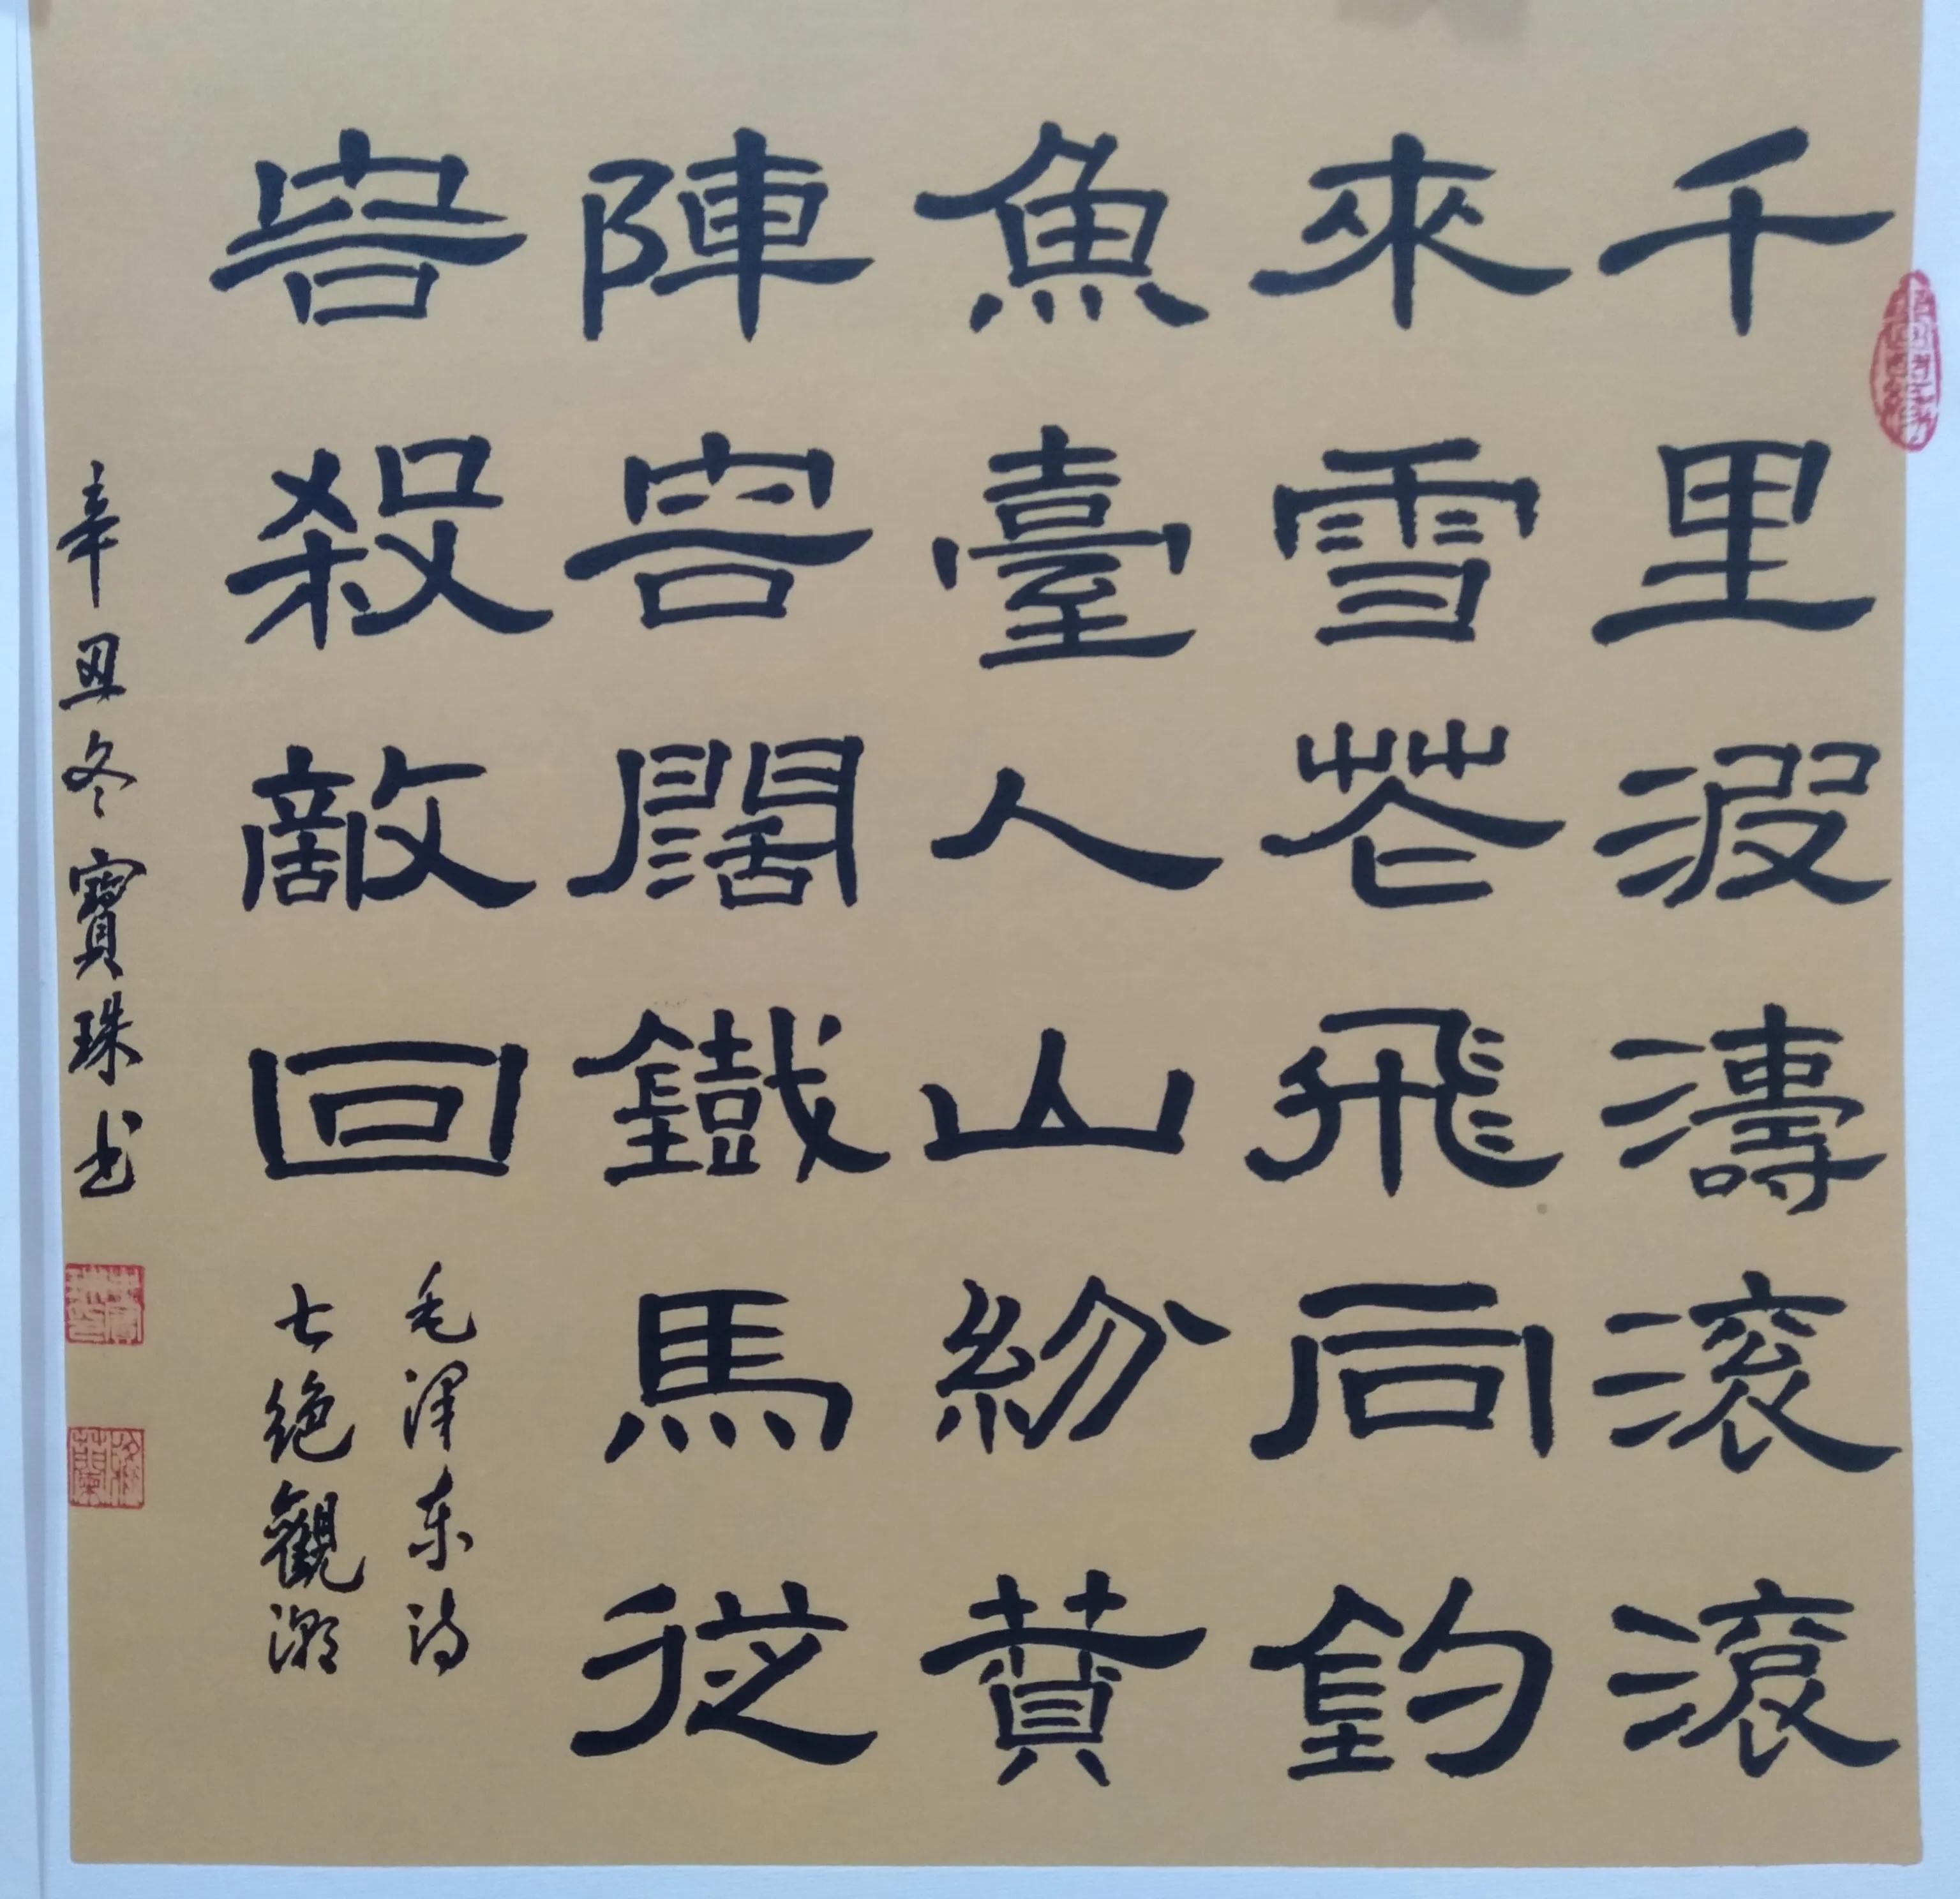 千里波濤滾滾
來雪花飛向釣
魚臺人山紛贊
陣容闊鐵馬從
容殺敵回
毛澤东诗
七绝觀潮
辛丑冬寶珠书